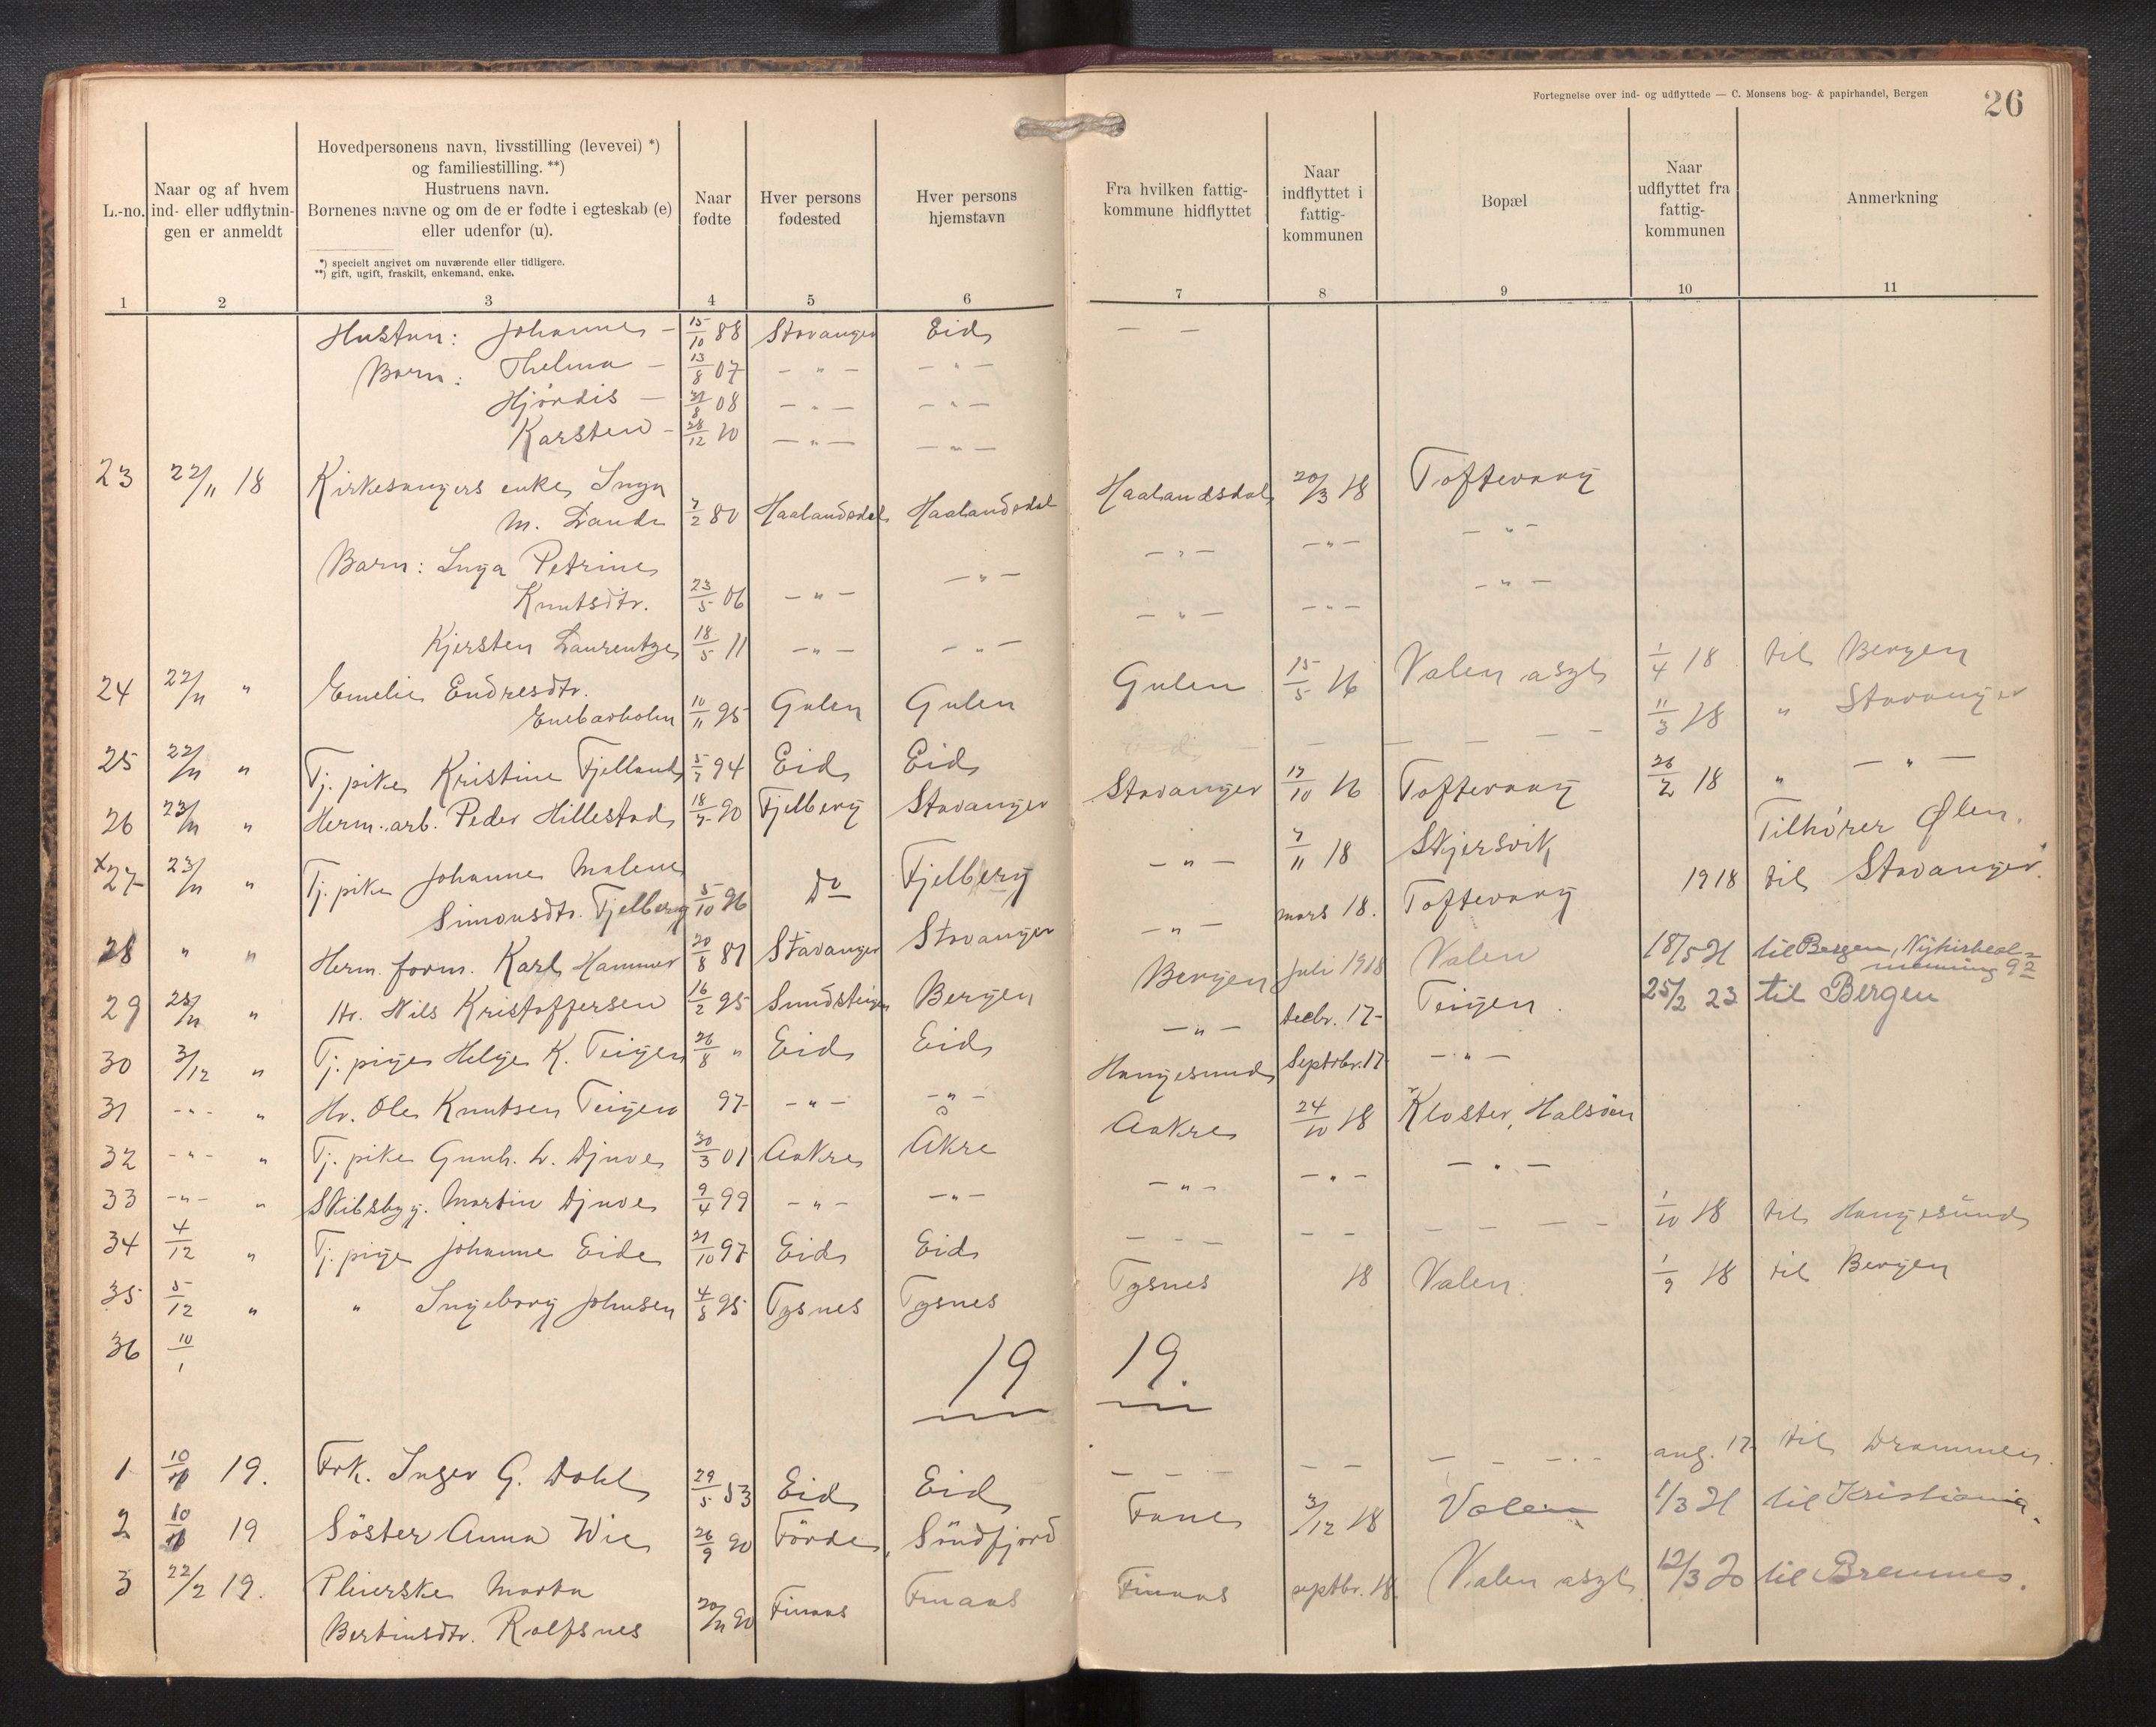 Fortegnelse over ind- og udflyttede — C. Monsens bog- & papirhandel, Bergen
26
L.-no.
Naar og af hvem ind- eller udflytningen er anmeldt
Hovedpersonens navn, livsstilling (levevei) *)
og familiestilling. **)
Hustruens navn.
Børnenes navne og om de er fødte i egteskab (e)
eller udenfor (u).
*) specielt angivet om nuværende eller tidligere.
**) gift, ugift, fraskilt, enkemand, enke.
Naar fødte
Hver persons fødested
Hver persons hjemstavn
Fra hvilken fattig-kommune hidflyttet
Naar indflyttet i fattig-kommunen
Bopæl
Naar udflyttet fra fattig-kommunen
Anmerkning
1 2 3 4 5 6 7 8 9 10 11
Hustru: Johanne — 15/10 88 Stavanger Eid — —
Barn: Thelma — 13/8 07 — " — — " —
Hjördis — 08 — " — — " —
Karsten — 28/12 10 — " — — " —
23 22/11 18 Kirkesangers enke Inga
M. Lande 7/2 80 Haalandsdal Haalandsdal Haalandsdal 20/3 18 Toftevaag
Barn: Inga Petrine
Knutsdtr. 23/5 06 — " — — " — — " — — " — — " —
Kjersten Laurentze 18/5 11 — " — — " — — " — — " — — " —
24 22/11 " Emelie Endresdtr.
Enebærholm 10/11 95 Gulen Gulen Gulen 15/5 16 Valen asyl 1/4 18 til Bergen
25 22/11 " Tj. pike Kristine Fjelland 5/7 94 Eid Eid — — — — — 11/3 18 " Stavanger
26 23/11 " Herm. arb. Peder Hillestad 18/7 90 Fjelberg Stavanger Stavanger 17/10 16 Toftevaag 26/2 18 " — " —
x27 23/11 " Tj. pike Johanne Malene
Simonsdtr. Fjelberg 5/10 96 Do Fjelberg — " — 7/11 18 Skjersvik Tilhører Ølen.
28 " " Herm. form. Karl Hammer 20/8 81 Stavanger Stavanger — " — mars 18. Toftevaag 1918 til Stavanger.
29 25/11 " Hr. Nils Kristoffersen 16/2 95 Bergen Bergen Juli 1918 Valen 18/5 21 til Bergen,
30 3/12 " Tj. pige Helge K. Teigen 26/8 " Eid Eid — " — decbr. 17 Teigen 25/2 23 til Bergen
31 - " - " Hr. Ole Knutsen Teigen 97 — " — — " — Haugesund Septbr. 17 — " —
32 - " - " Tj. pike Gunh. L. Djuve 30/3 01 Aakre Åkre Aakre 24/10 18 Kloster, Halsöen
33 - " - " Skibsbyg. Martin Djuve 9/4 99 — " — — " — — " — — " — — " —
34 4/12 " Tj. pige Johanne Eide 21/10 97 Eid Eid — — — — — — — — — 1/10 18 til Haugesund
35 5/12 " " Ingeborg Johnsen 4/8 95 Tysnes Tysnes Tysnes 18 Valen. 1/9 18 til Bergen
36 10/1
19 19.
1 10/1 19. Frk. Inger G. Dahl 29/5 53 Eid Eid — — — — — — — — aug. 17 til Drammen.
2 10/1 19 Söster Anna Wie 26/9 90 Förde, Söndfjord Fane 3/12 18 Valen 1/3 21 til Kristiania.
3 22/2 19. Pleierske Marta
Bertinsdtr. Rolfsnes 20/11 90 Finaas Finaas Finaas septbr. 18. Valen asyl 12/3 20 til Bremnes.